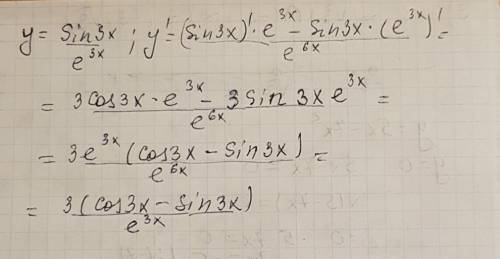 y = Sin3x / e^3x ; y' = (Sin3x)' · e^3x − Sin3x · (e^3x)' / e^6x =
= 3cos3x · e^3x − 3Sin 3x e^3x / e^6x =
= 3e^3x (cos3x − Sin3x) / e^6x =
= 3(cos3x − Sin3x) / e^3x